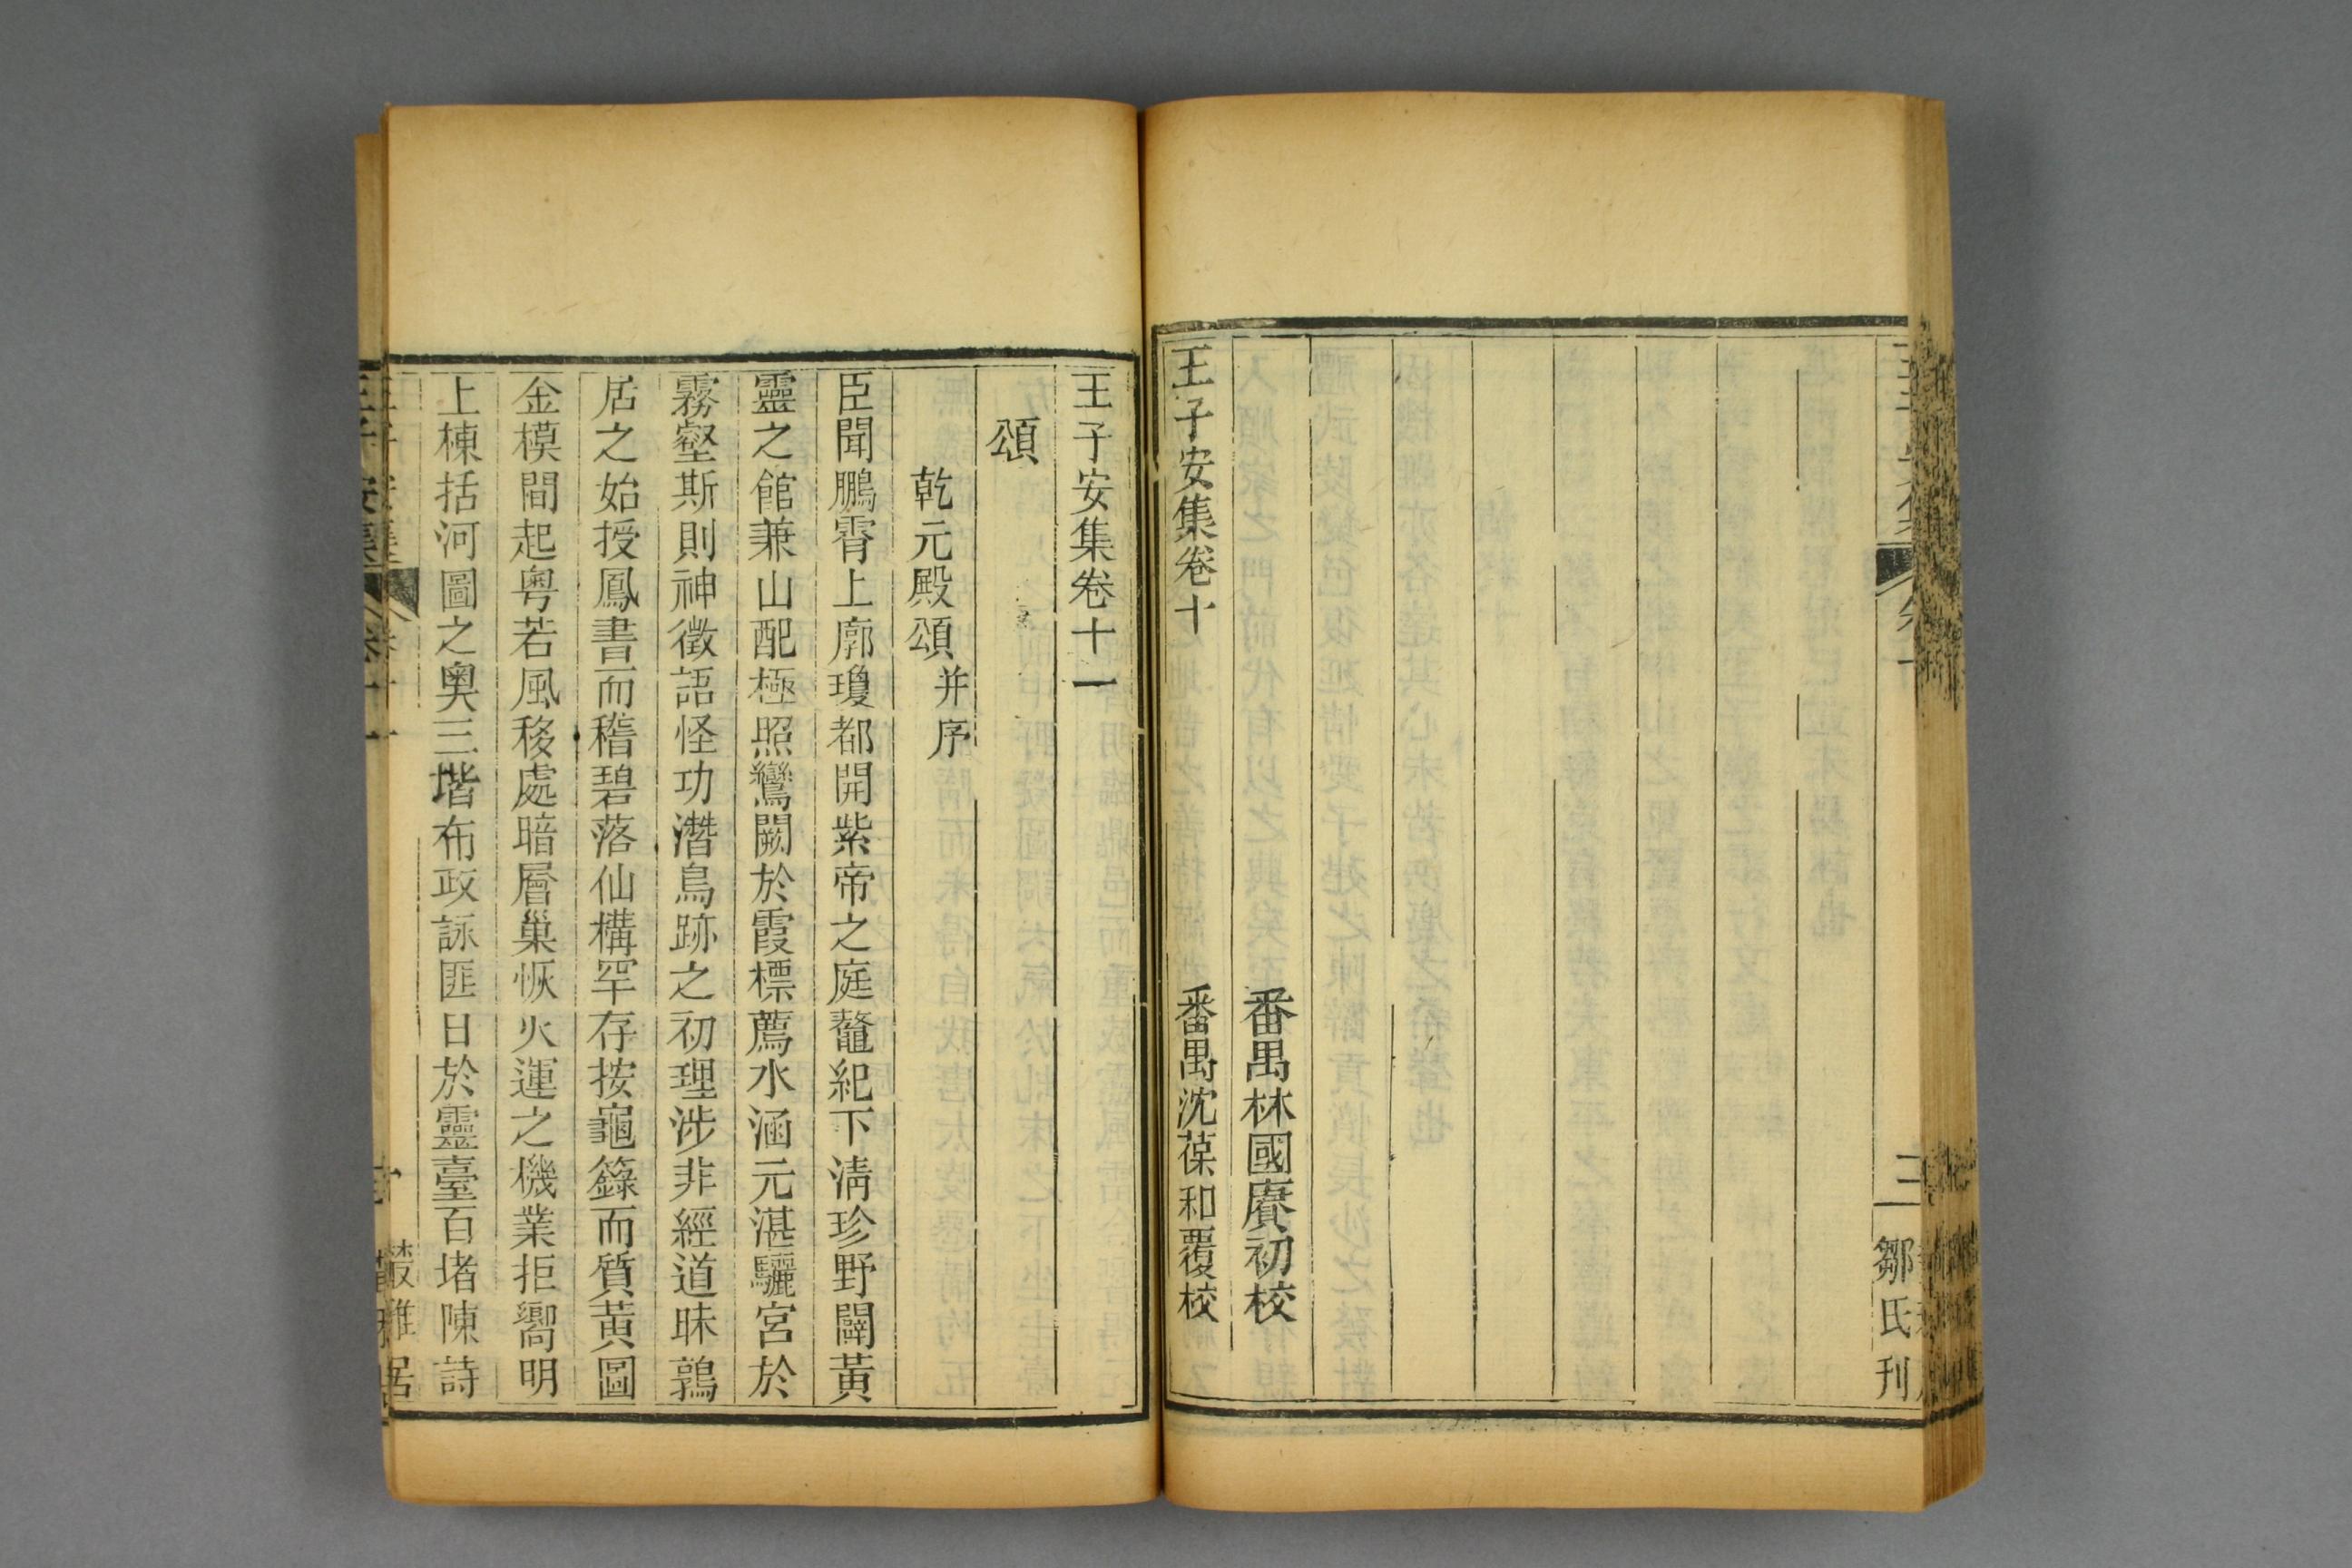 番禺林國賡初校
王子安集卷十
番禺沈葆和覆校
三
鄒氏刊
王子安集卷十一
頌
乾元殿頌并序
臣聞鵬霄上廓瓊都開紫帝之庭鼇紀下淸珍野闢黃
靈之館兼山配極照鸞闕於霞標薦水涵元湛驪宮於
霧壑斯則神徵語怪功潛鳥跡之初理涉非經道昧鶉
居之始授鳳書而稽碧落仙構罕存按龜籙而質黃圖
金模間起粵若風移處暗層巢恢火運之機業拒嚮明
上棟括河圖之奧三堦布政詠匪日於靈臺百堵陳詩